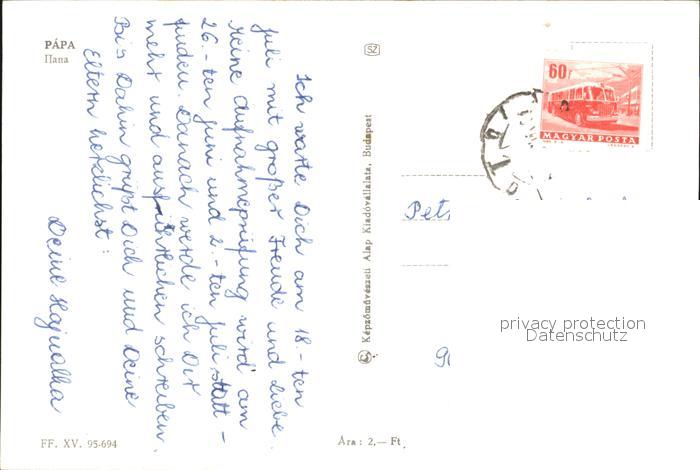 PÁPA
Папа
Ich warte Dich am 18-ten
Juli mit großer Freude und Liebe.
Meine Aufnahmeprüfung wird am
26.-ten Juni und 2.-ten Juli statt-
finden. Danach werde ich Dir
mehr und ausführlichen schreiben.
Bis Dahin grüßt Dich und Deine
Eltern herzlichst:
Deine Hajnalka
FF. XV. 95-694
Ára: 2,— Ft
SZ
Képzőművészeti Alap Kiadóvállalata, Budapest
60f
MAGYAR POSTA
privacy protection
Datenschutz